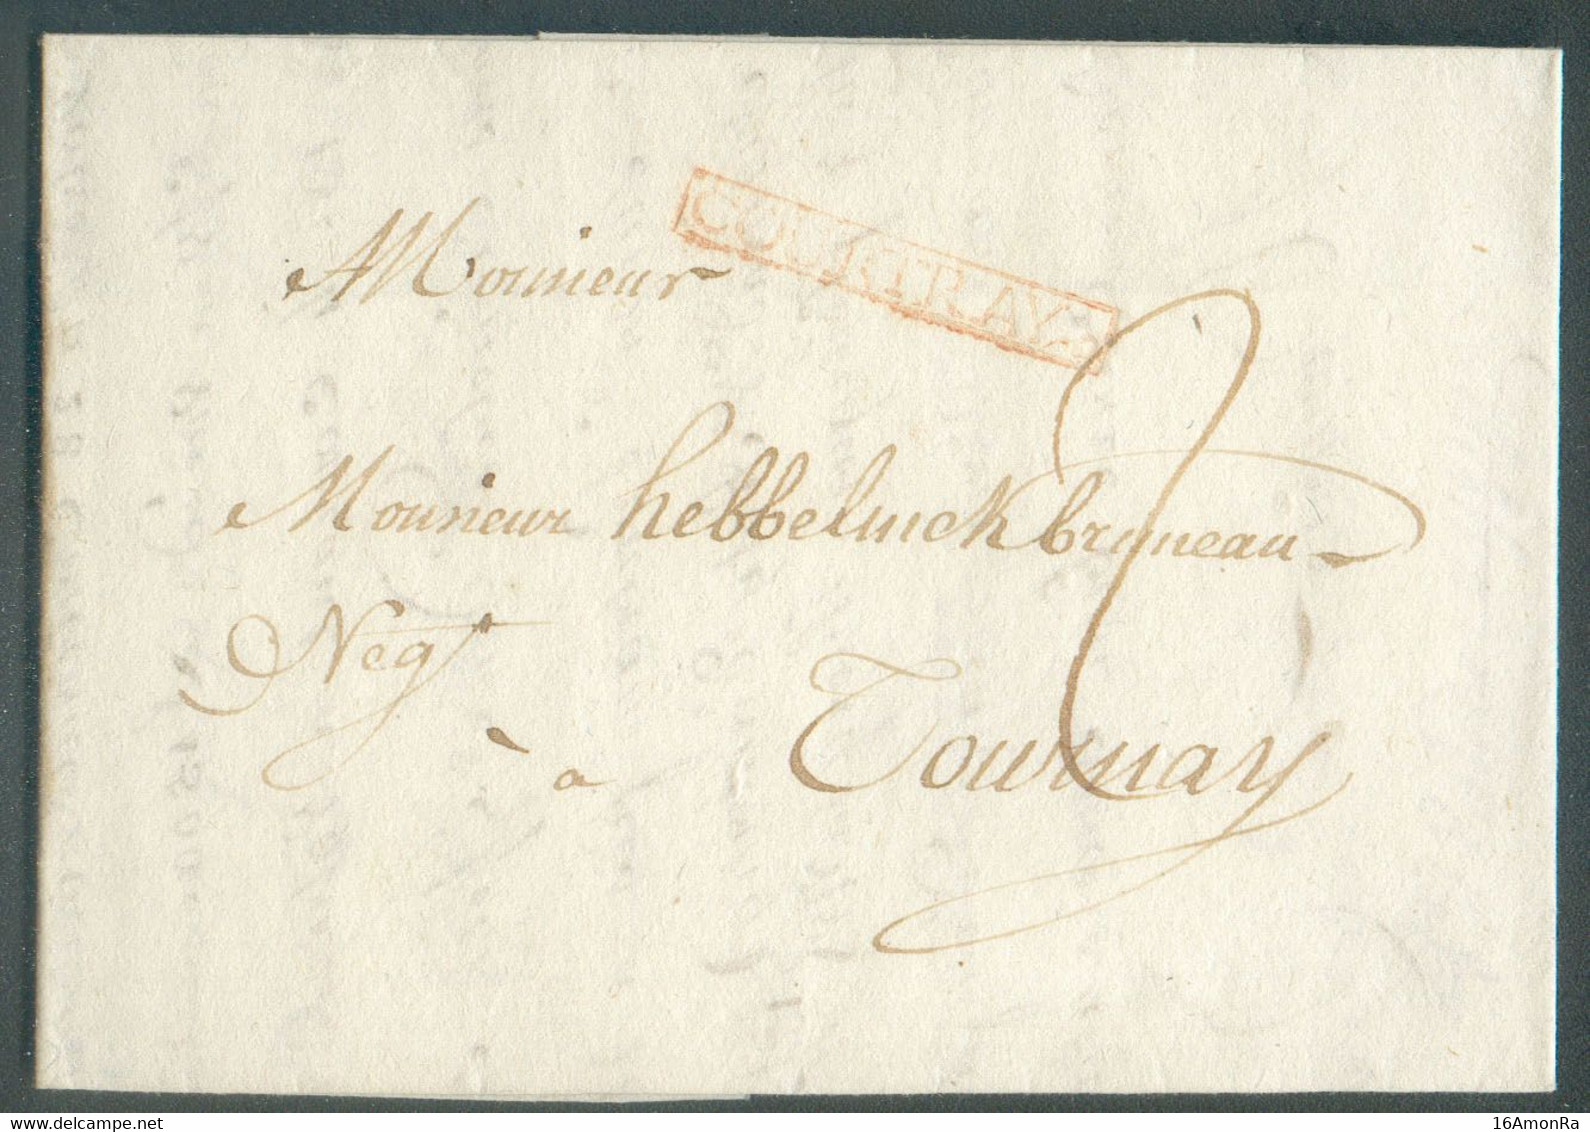 COURTRAY
Monsieur
Monsieur hebbelinck bruneau
Neg.t
à Tournay
delcampe.net
16AmonRa